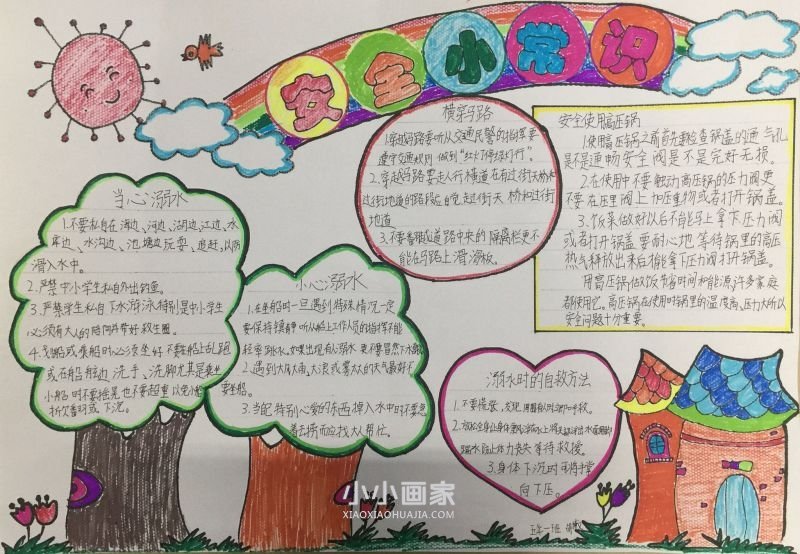 安全小常识
当心溺水
1.不要私自在海边、河边、湖边、江边、水
库边、水沟边、池塘边玩耍、追赶,以防
滑入水中。
2.严禁中小学生私自外出钓鱼。
3.严禁学生私自下水游泳特别是中小学生
必须有大人的陪同并带好救生圈。
小船时不要摇晃,也不要超重以免小船
小心溺水
1.在坐船时一旦遇到特殊情况一定
要保持镇静听从船上工作人员的指挥不能
轻率跳水,如果出现有人溺水更不要冒然下水
2.遇到大风大雨、大浪或雾太大的天气最好不
要坐船。
3.当自己特别心爱的东西掉入水中时不要急
着去捞而应找大人帮忙。
横穿马路
1.穿越马路要听从交通民警的指挥要
遵守交通规则做到“红灯停绿灯行”。
2.穿越马路要走人行横道在有过街天桥和
过街地道的路段应自觉走过街天桥和过街
地道
3.不要
能在马路上滑滑板。
安全使用高压锅
1.使用高压锅之前首先要检查锅盖的通气孔
是不是通畅安全阀是不是完好无损。
2.在使用中不要触动高压锅的压力阀更
不要在压里阀上加压重物或者打开锅盖。
3.饭菜做好以后不能马上拿下压力阀
或者打开锅盖要耐心地等待锅里的高压
热气释放出来后才能拿下压力阀打开锅盖。
用高压锅做饭节省时间和能源,许多家庭
都使用它。高压锅在使用时锅里的温度高、压力大所以
安全问题十分重要。
溺水时的自救方法
1.不要慌张,发现周围有人时立即呼救。
2.放松全身让身体漂浮在水面上将头部浮出水面用脚
踢水防止体力丧失等待救援。
3.身体下沉时可将手掌
向下压。
小小画家
XIAOXIAOHUAJIA.COM